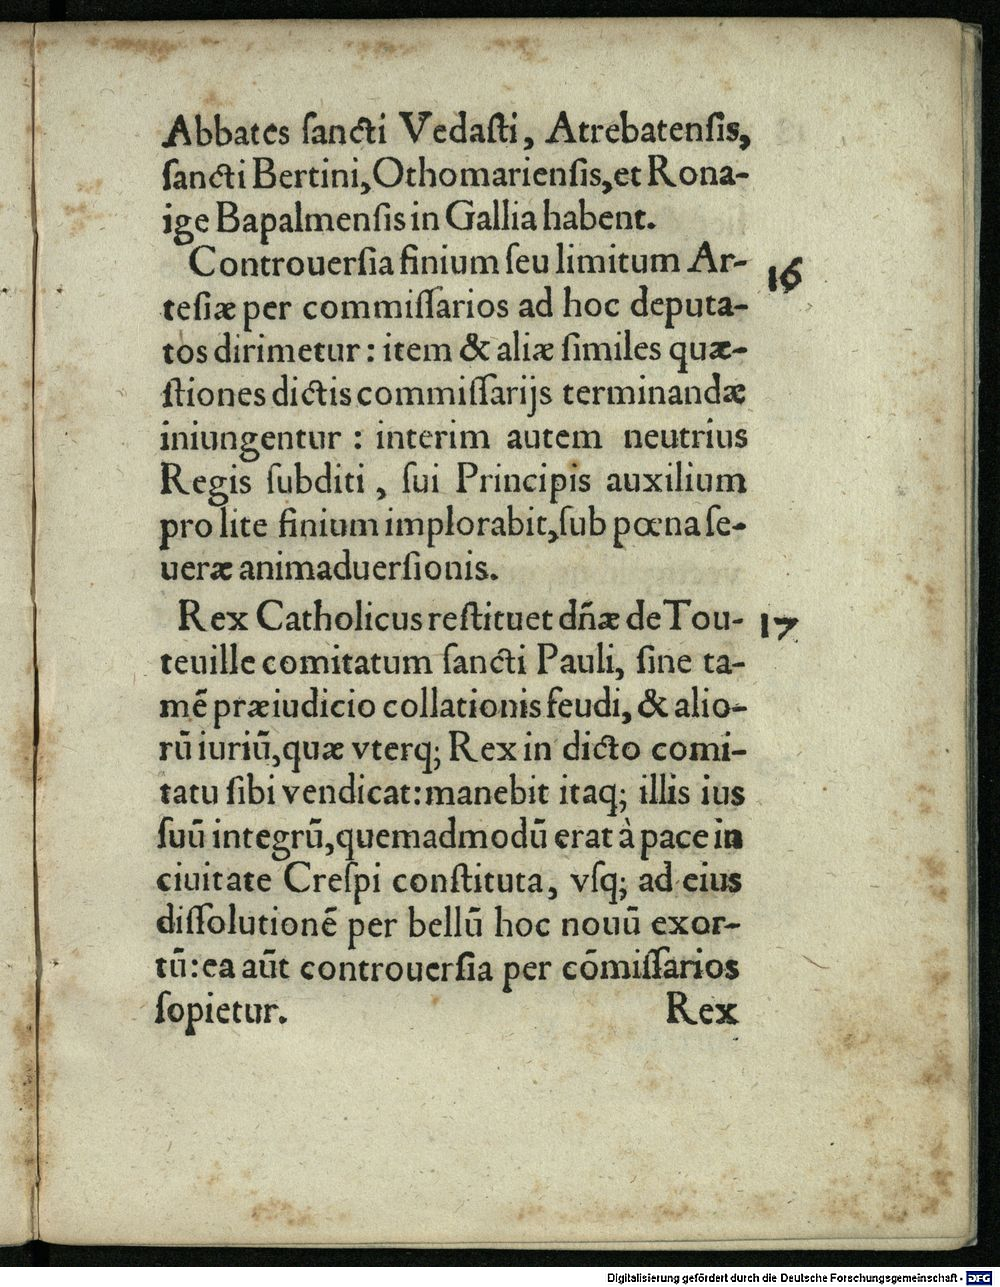 Abbates ſancti Vedaſti, Atrebatenſis,
ſancti Bertini, Othomarienſis, et Rona-
ige Bapalmenſis in Gallia habent.
Controuerſia finium ſeu limitum Ar- 16
teſiæ per commiſſarios ad hoc deputa-
tos dirimetur: item & aliæ ſimiles quæ-
ſtiones dictis commiſſarijs terminandæ
iniungentur : interim autem neutrius
Regis ſubditi, ſui Principis auxilium
pro lite finium implorabit, ſub pœna ſe-
ueræ animaduerſionis.
Rex Catholicus reſtituet dn̄æ de Tou- 17
teuille comitatum ſancti Pauli, ſine ta-
mē præiudicio collationis feudi, & alio-
rū iuriū, quæ vterq; Rex in dicto comi-
tatu ſibi vendicat: manebit itaq; illis ius
ſuū integrū, quemadmodū erat à pace in
ciuitate Creſpi conſtituta, vſq; ad eius
diſſolutionē per bellū hoc nouū exor-
tū: ea aūt controuerſia per cōmiſſarios
ſopietur. Rex
Digitalisierung gefördert durch die Deutsche Forschungsgemeinschaft - DFG